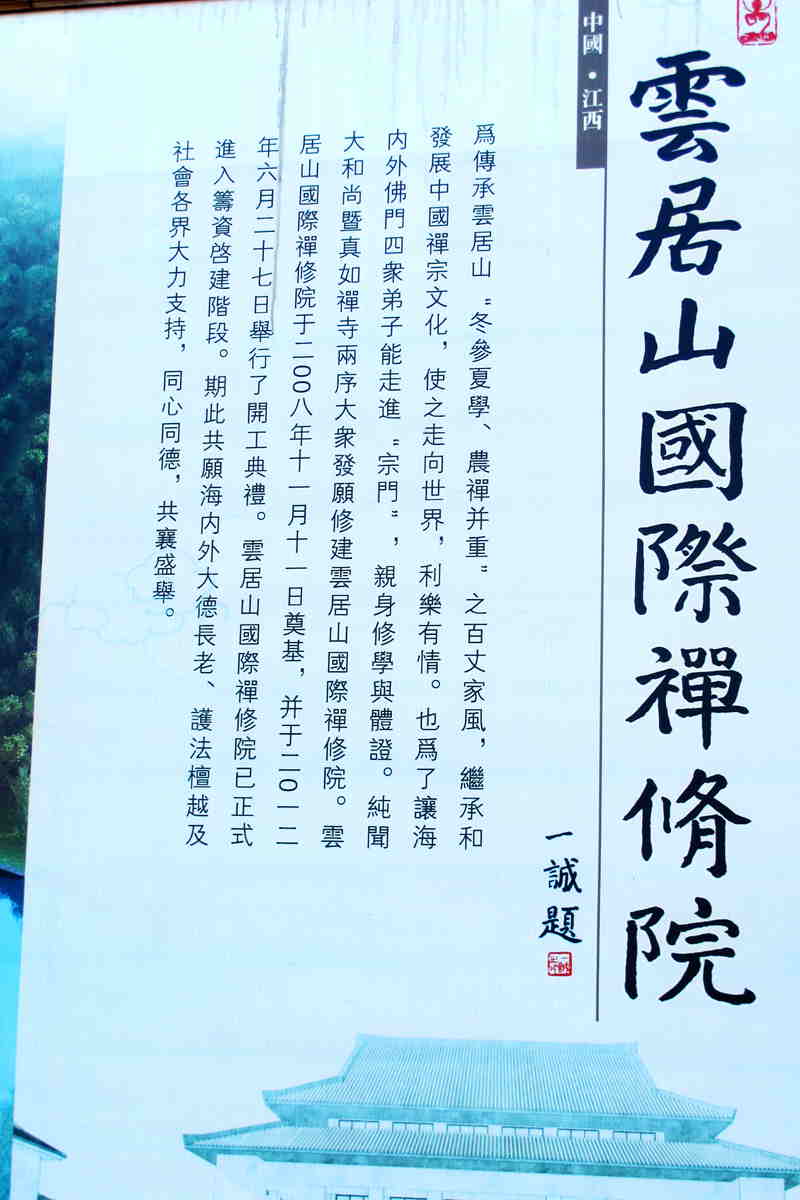 雲居山國際禪脩院
中國·江西
一誠題
爲傳承雲居山“冬參夏學、農禪并重”之百丈家風，繼承和
發展中國禪宗文化，使之走向世界，利樂有情。也爲了讓海
内外佛門四衆弟子能走進“宗門”，親身修學與體證。純聞
大和尚暨真如禪寺兩序大衆發願修建雲居山國際禪修院。雲
居山國際禪修院于二00八年十一月十一日奠基，并于二0一二
年六月二十七日舉行了開工典禮。雲居山國際禪修院已正式
進入籌資啓建階段。期此共願海内外大德長老、護法檀越及
社會各界大力支持，同心同德，共襄盛舉。